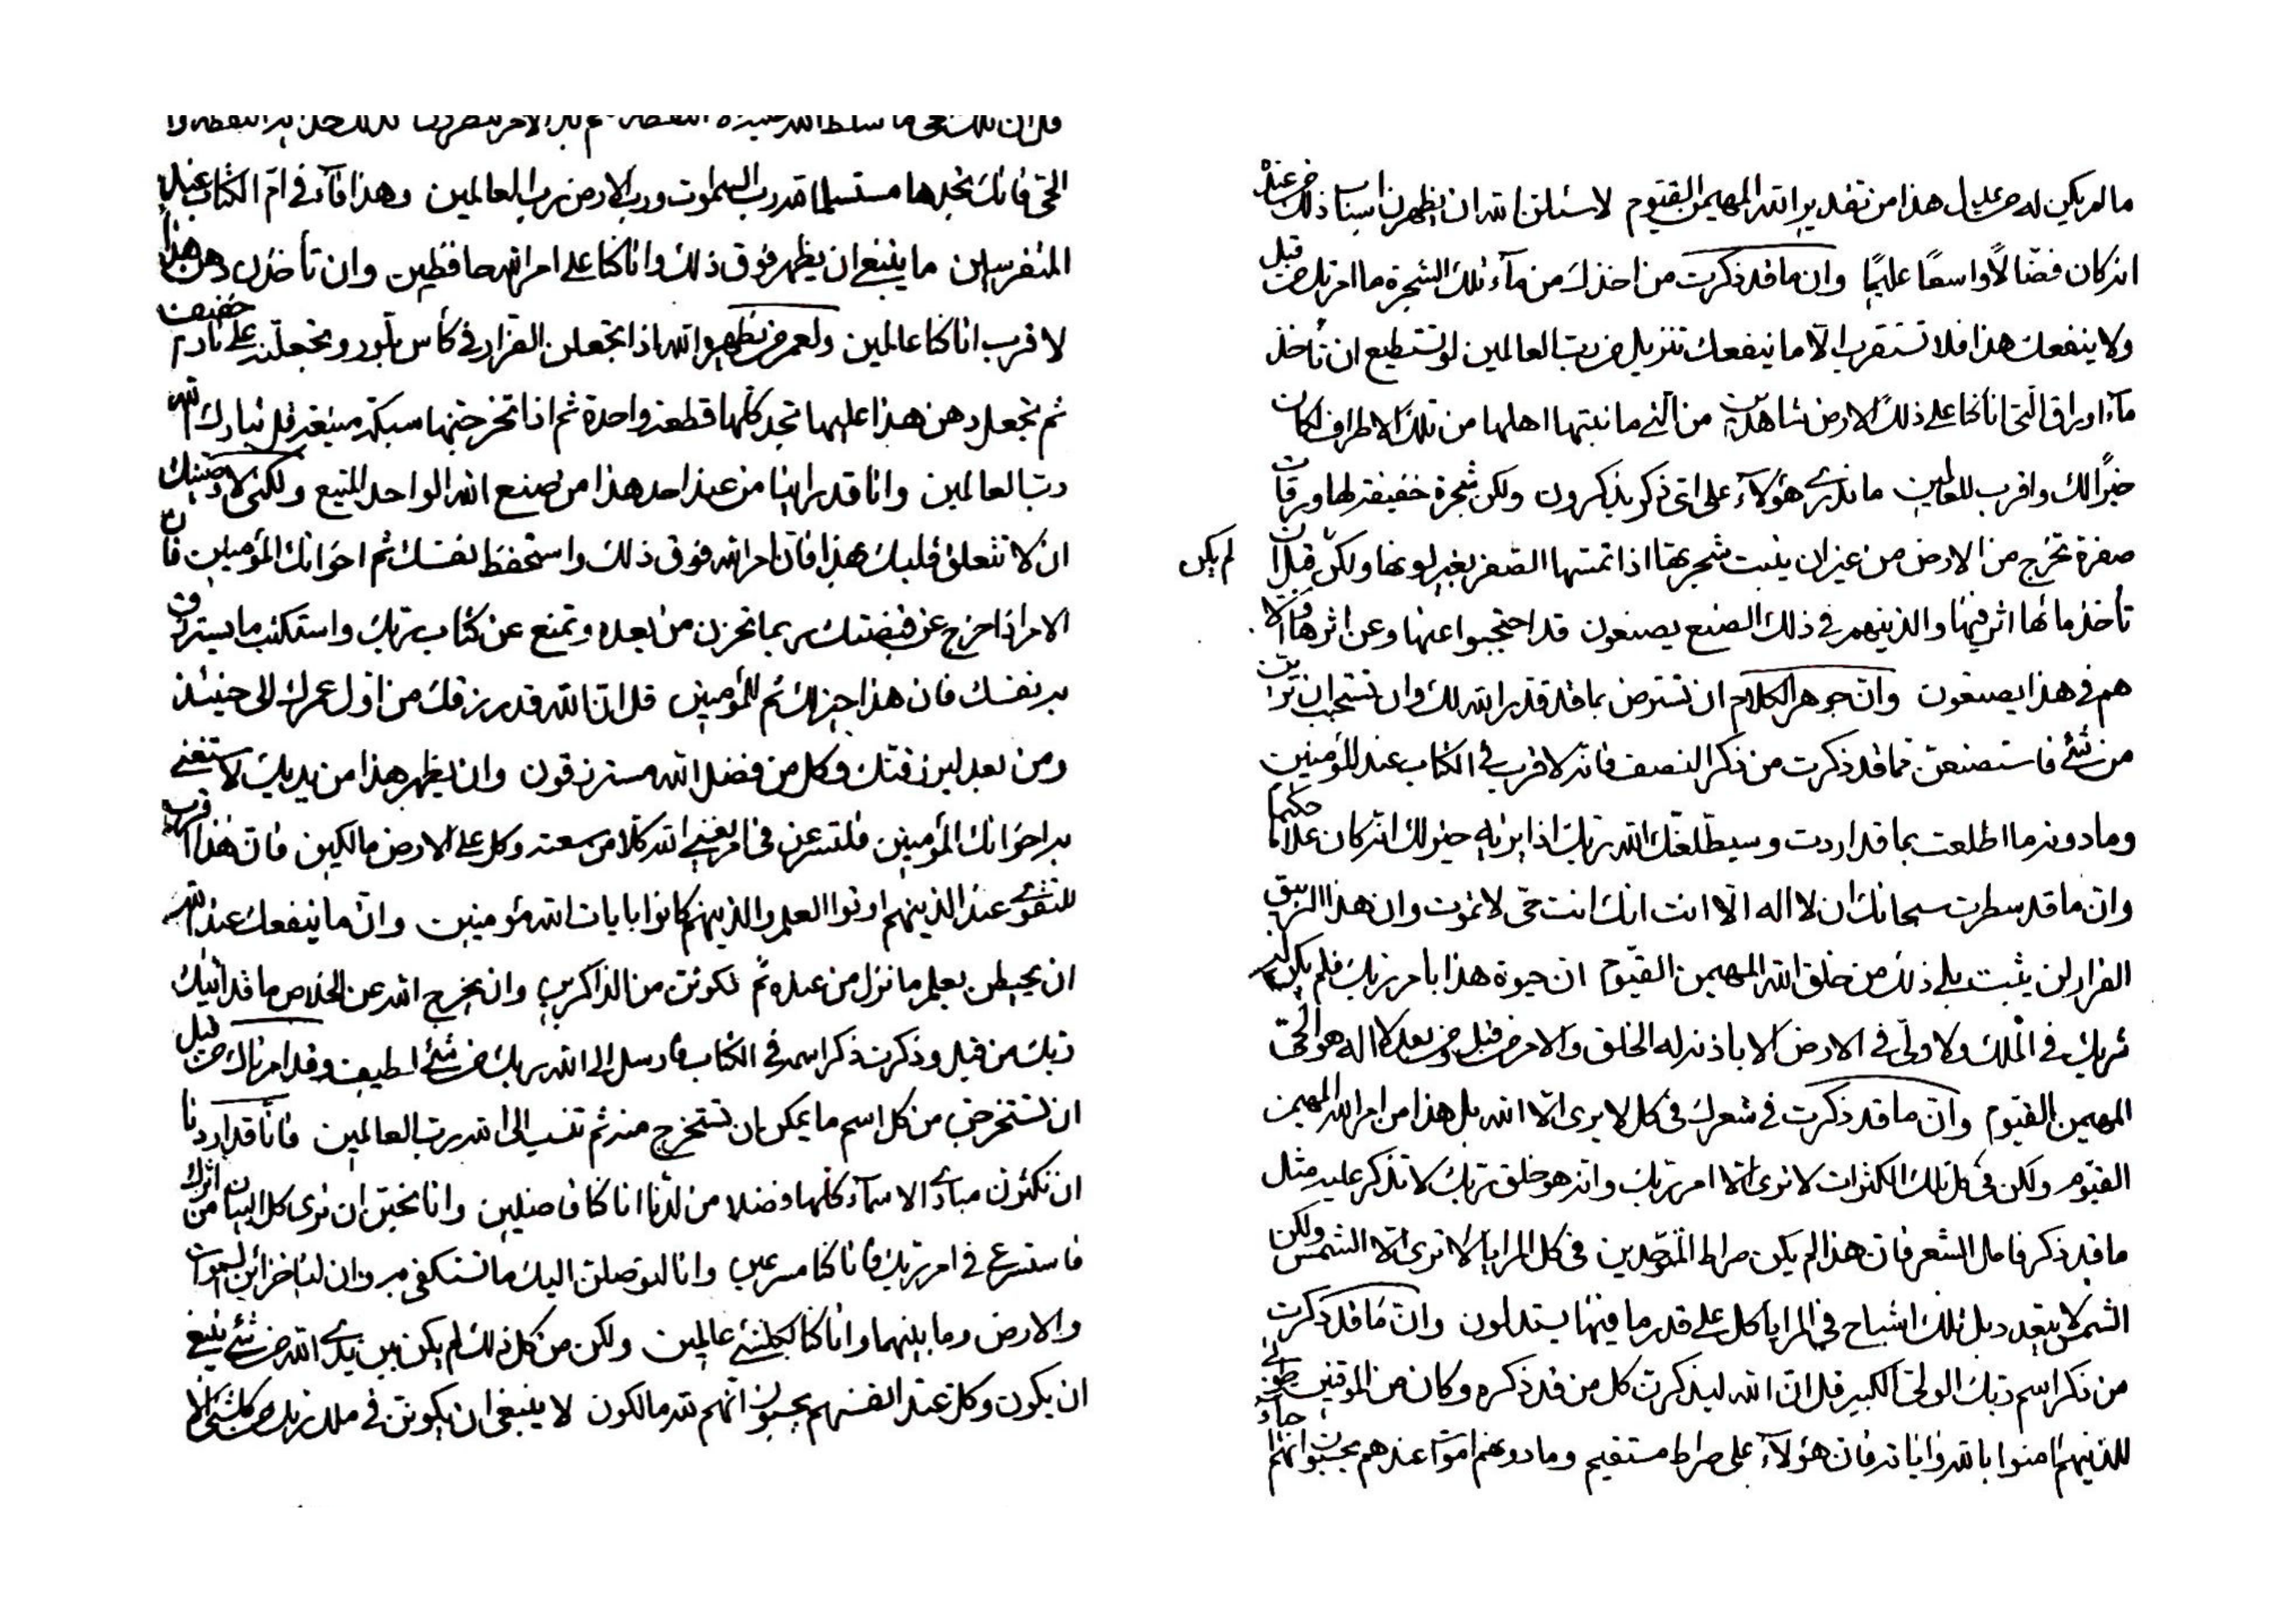 ما لم يكن له من عليل هذا من تقدير الله المهيمن القيوم لاسئلن الله ان يظهرن اسبنا ذلك من عنده
انه كان فضالا واسعا عليما وان ما قد ذكرت من اخذك من مآء تلك الشجرة ما امر ربك من قبل
ولا ينفعك هذا فلا تستقرب الا ما ينفعك تنزيل من رب العالمين لو تستطيع ان تأخذ
مآء اوراق التي انا كنا على ذلك الارض شاهدين من التي ما نبتها اهلها من تلك الاطراف لكان
خيرا لك واقرب للعالمين ما ندرى هؤلآء على اى ذكر يذكرون ولكن شجرة خفيفة لها ورقات
صفرة تخرج من الارض من غير ان ينبت شجرتها اذا تمسها الصفر يغير لونها ولكن قبل ان لم يكن
تأخذ مائها اثر فيها والذينهم في ذلك الصنع يصنعون قد احتجبوا عنها وعن اثرها
هم في هذا يصنعون وان جوهر الكلام ان تسترض بما قد قدر الله لك وان تستحجب ان ترات
من شئ فاستصنعن مما قد ذكرت من ذكر النصف فانه لاقرب في الكتاب عند المؤمنين
وما دونه ما اطلعت بما قد اردت وسيطلعنك الله ربك اذا يرنه خير لك انه كان علاما حكيما
وان ما قد سطرت سبحانك ان لا اله الا انت انك انت حى لا تموت وان هذا الزيبق
الفرار لن يثبت بلى ذلك من خلق الله المهيمن القيوم ان حيوة هذا بامر ربك فلم يكن له
شريك في الملك ولا ولى في الارض الا باذنه له الخلق والامر من قبل ومن بعد لا اله هو الحى
المهيمن القيوم وان ما قد ذكرت في شعرك في كل لا يرى الا الله بل هذا من امر الله المهيمن
القيوم ولكن في كل تلك الكثرات لا نرى الا امر ربك وانه هو خلق ربك لا تذكر عليه مثل
ما قد ذكر قامل الشعر فان هذا لم يكن صراط الموحدين في كل المرايا لا ترى الا الشمس ولكن
الشمس لا يتعدد بل تلك اشباح في المرايا كل على قدر ما فيها يستدلون وان ما قد ذكرت
من ذكر اسم ربك الولى الكبير قل ان الله ليذكرن كل من قد ذكره وكان من الموقنين طوبى
للذينهم امنوا بالله واياته فان هؤلآء على صراط مستقيم وما دونهم اموات عندهم يحسبون انهم احيآء
الحى فانك تجدها مستسلما قد رب السموت ورب الارض رب العالمين وهذا فآء في ام الكتاب عند
المتفرسين ما ينبغ ان يظهر فوق ذلك وانا كنا على امر الله حافظين وان تأخذن دهن هذا
لاقرب انا كنا عالمين ولعمر من يظهره الله اذا تجعلن الفرار في كأس بلور وتجعلنه على نار خفيف
ثم تجعل دهن هذا عليها تجد كلها قطعة واحدة ثم اذا تخرجنها سبكة مينغة قل تبارك الله
رب العالمين وانا قد راينا من عند احد هذا من صنع الله الواحد المنيع ولكنى لاوصينك
ان لا تتعلق قلبك بهذا فان امر الله فوق ذلك واستحفظ نفسك ثم اخوانك المؤمنين فان
الامر اذا خرج عن قبضتك ربما تحزن من بعده وتمنع عن كتاب ربك واستكتب ما يسترزق
به نفسك فان هذا خير لك ثم للمؤمنين قل ان الله قد رزقك من اول عمرك الى حينئذ
ومن بعد ليرزقنك وكل من فضل الله مسترزقون وان يظهر هذا من يديك لاستغنى
به اخوانك المؤمنين فلتسرعن في امر يغنى الله كلا من سعته وكل على الارض مالكين فان هذا اقرب
للتقوى عند الذينهم اوتوا العلم والذينهم كانوا بايات الله مؤمنين وان ما ينفعك عند الله
ان يحيطن بعلم ما نزل من عنده ثم لتكونن من الذاكرين وان يخرج الله عن الخلاص ما قد اتيك
ربك من قبل وذكرت ذكر اسمه في الكتاب فارسل الى الله ربك من شئ لطيف وقد امرناك من قبل
ان تستخرجن من كل اسم ما يمكن ان تستخرج منه ثم تنسب الى الله رب العالمين فانا قد اردنا
ان نكثرن مبادى الاسمآء كلها فضلا من لدنا انا كنا فاضلين وانا نحبن ان نرى كل البيان من اثرك
فاستسرع في امر ربك فانا كنا مسرعين وانا لنوصلن اليك ما تستكفى به وان لنا خزائن السموات
والارض وما بينهما وانا كنا بكلشئ عالمين ولكن من كل ذلك لم يكن بين يدى الله من شئ ينبغ
ان يكون وكل عند انفسهم يحسبون انهم لله مالكون لا ينبغى ان يكونن في ملك ربك من كلشئ الا